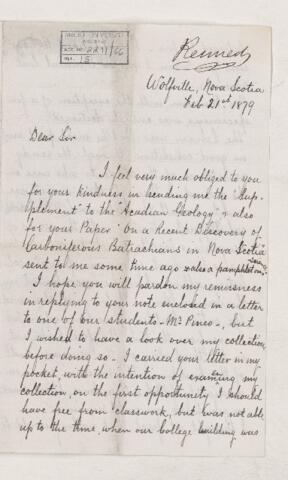 McGILL UNIVERSITY
ARCHIVES
ACC. NO. 2211/66
REF. 15
Kennedy
Wolfville, Nova Scotia
Feb 21st 1879
Dear Sir
I feel very much obliged to you
for your kindness in sending me the "Sup-
plement" to the "Acadian Geology" & also
for your Paper "On a Recent Discovery of
Carboniferous Batrachians in Nova Scotia"
sent to me some time ago & also a pamphlet on
I hope you will pardon my remissness
in replying to your note enclosed in a letter
to one of our students - Mr Pineo -, but
I wished to have a look over my collection
before doing so - I carried your letter in my
pocket, with the intention of examing my
collection, on the first opportunity I should
have free from classwork, but was not able
up to the time, when our College building was